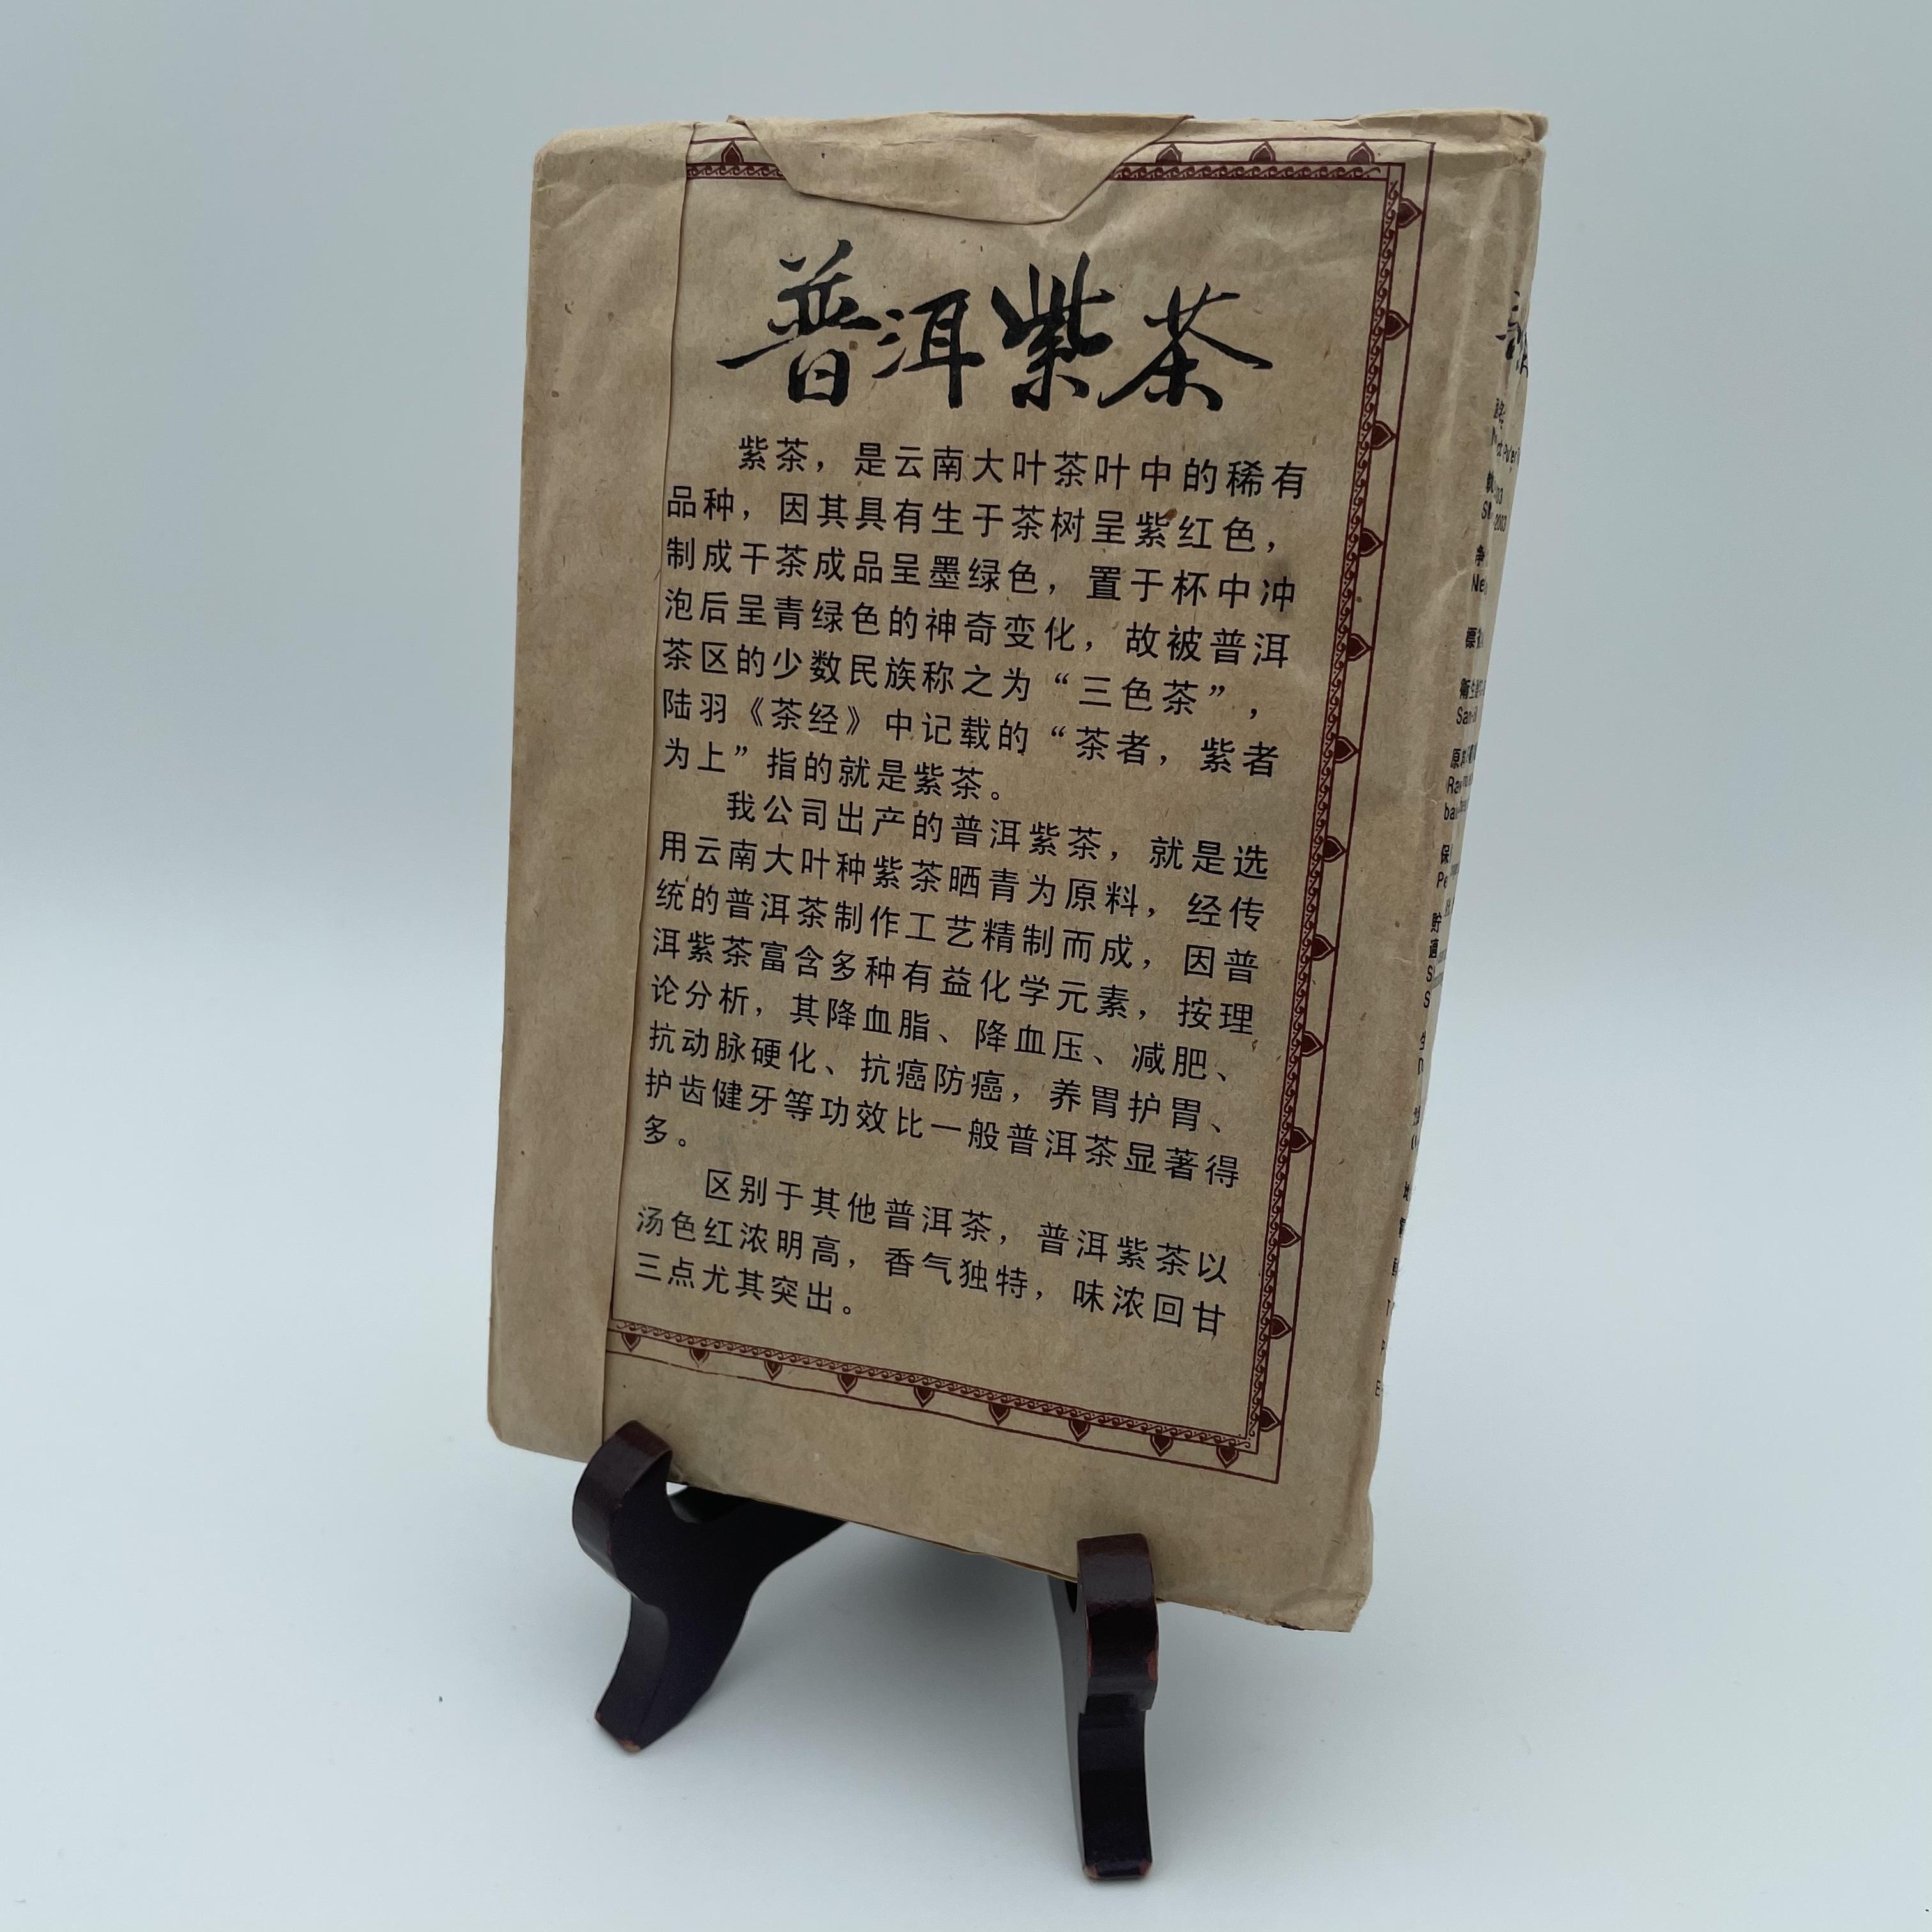 普洱紫茶
紫茶，是云南大叶茶叶中的稀有
品种，因其具有生于茶树呈紫红色，
制成干茶成品呈墨绿色，置于杯中冲
泡后呈青绿色的神奇变化，故被普洱
茶区的少数民族称之为“三色茶”，
陆羽《茶经》中记载的“茶者，紫者
为上”指的就是紫茶。
我公司出产的普洱紫茶，就是选
用云南大叶种紫茶晒青为原料，经传
统的普洱茶制作工艺精制而成，因普
洱紫茶富含多种有益化学元素，按理
论分析，其降血脂、降血压、减肥、
抗动脉硬化、抗癌防癌，养胃护胃、
护齿健牙等功效比一般普洱茶显著得
多。
区别于其他普洱茶，普洱紫茶以
汤色红浓明高，香气独特，味浓回甘
三点尤其突出。